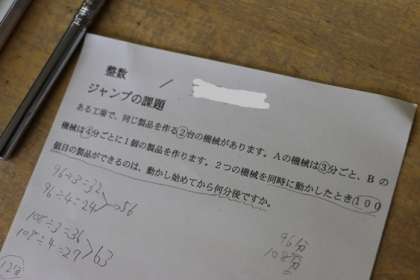 整数
ジャンプの課題
ある工場で、同じ製品を作る②台の機械があります。Aの機械は③分ごと、Bの
機械は④分ごとに1個の製品を作ります。2つの機械を同時に動かしたとき100
個目の製品ができるのは、動かし始めてから何分後ですか。
96÷3=32
96÷4=24 56
108÷3=36
108÷4=27 63
96分
108分